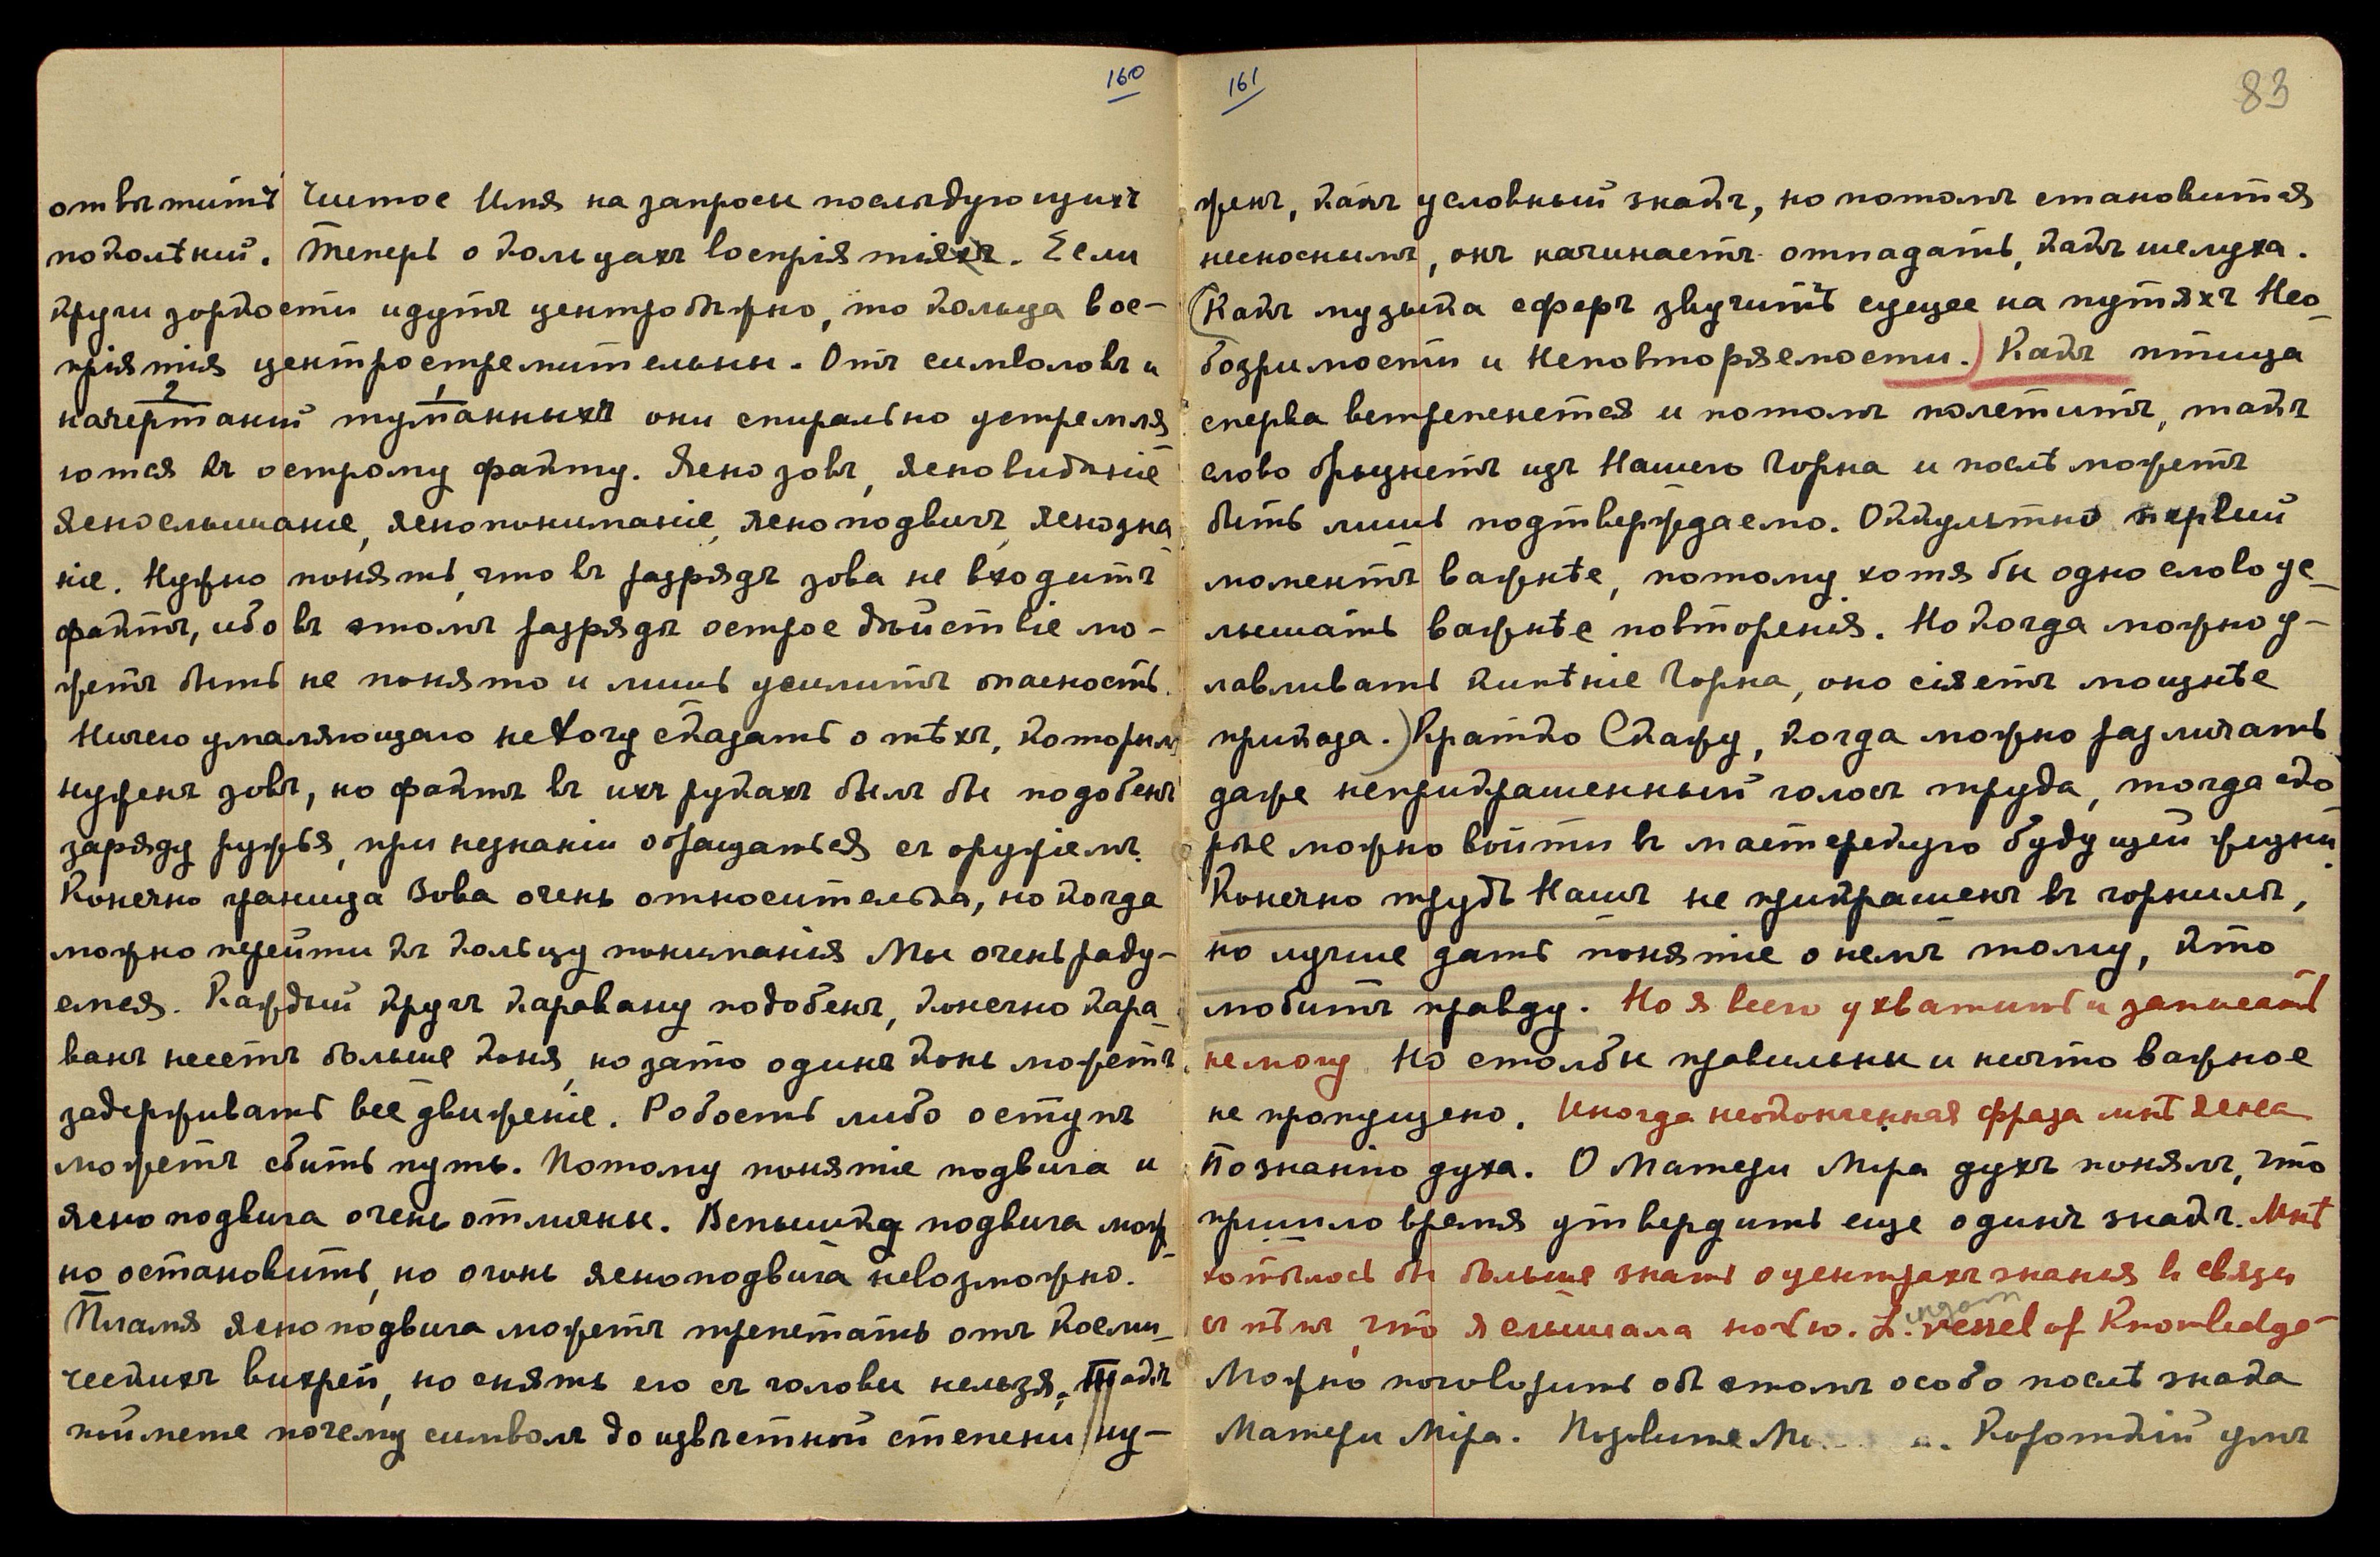 160
отвѣтить чистое Имя на запросы послѣдующихъ
поколѣній. Теперь о кольцахъ воспріятія. Если
круги зоркости идутъ центробѣжно, то кольца вос-
пріятія центростремительны. Отъ символовъ и
2 1
начертаний туманныхъ они спирально устремля-
ются къ острому факту. Ясно зовъ, ясновидѣніе
яснослышаніе, яснопониманіе, ясноподвигъ, яснозна-
ніе. Нужно понять, что въ разрядъ зова не входитъ
фактъ, ибо въ этомъ разрядѣ острое дѣйствіе мо-
жетъ быть не понято и лишь усилитъ опасность.
Ничего умаляющаго не хочу сказать о тѣхъ, которымъ
нуженъ зовъ, но фактъ въ ихъ рукахъ былъ бы подобенъ
заряду ружья, при незнаніи обращаться съ оружіемъ.
Конечно граница Зова очень относительна, но когда
можно перейти къ кольцу пониманія Мы очень раду-
емся. Каждый кругъ каравану подобенъ, конечно кара-
ванъ несетъ больше коня, но зато одинъ конь можетъ
задерживать всё движеніе. Робость либо оступь
можетъ сбить путь. Потому понятіе подвига и
ясноподвига очень отличны. Вспышку подвига мож-
но остановить, но огонь ясноподвига невозможно.
Пламя ясноподвига можетъ трепетать отъ косми-
ческихъ вихрей, но снять его съ головы нельзя. Такъ
поймете почему символъ до извѣстной степени ну-
161
83
женъ, какъ условный знакъ, но потомъ становится
несноснымъ, онъ начинаетъ отпадать, какъ шелуха.
(Какъ музыка сферъ звучитъ сущее на путяхъ Нео-
бозримости и Неповторяемости.) Какъ птица
сперва встрепенется и потомъ полетитъ, такъ
слово брызнетъ изъ Нашего Горна и послѣ можетъ
быть лишь подтверждаемо. Оккультно первый
моментъ важнѣе, потому хотя бы одно слово ус-
лышать важнѣе повторенія. Но когда можно у-
лавливать кипѣніе Горна, оно сіяетъ мощнѣе
приказа.) Кратко Скажу, когда можно различать
даже неприкрашенный голосъ труда, тогда ско-
рѣе можно войти въ мастерскую будущей жизни.
Конечно трудъ Нашъ не прикрашенъ въ горнилѣ,
но лучше дать понятіе о немъ тому, кто
любитъ правду. Но я всего ухватить и записать
не могу. Но столбы правильны и ничто важное
не пропущено. Иногда неоконченная фраза мнѣ ясна
по знанію духа. О Матери Міра духъ понялъ, что
пришло время утвердить еще одинъ знакъ. Мнѣ
хотѣлось бы больше знать о центрахъ знанія въ связи
съ тѣмъ, что я слышала ночью. L. vessel of Knowledge
Можно поговорить объ этомъ особо послѣ знака
Матери Міра. Позовите Короткій умъ